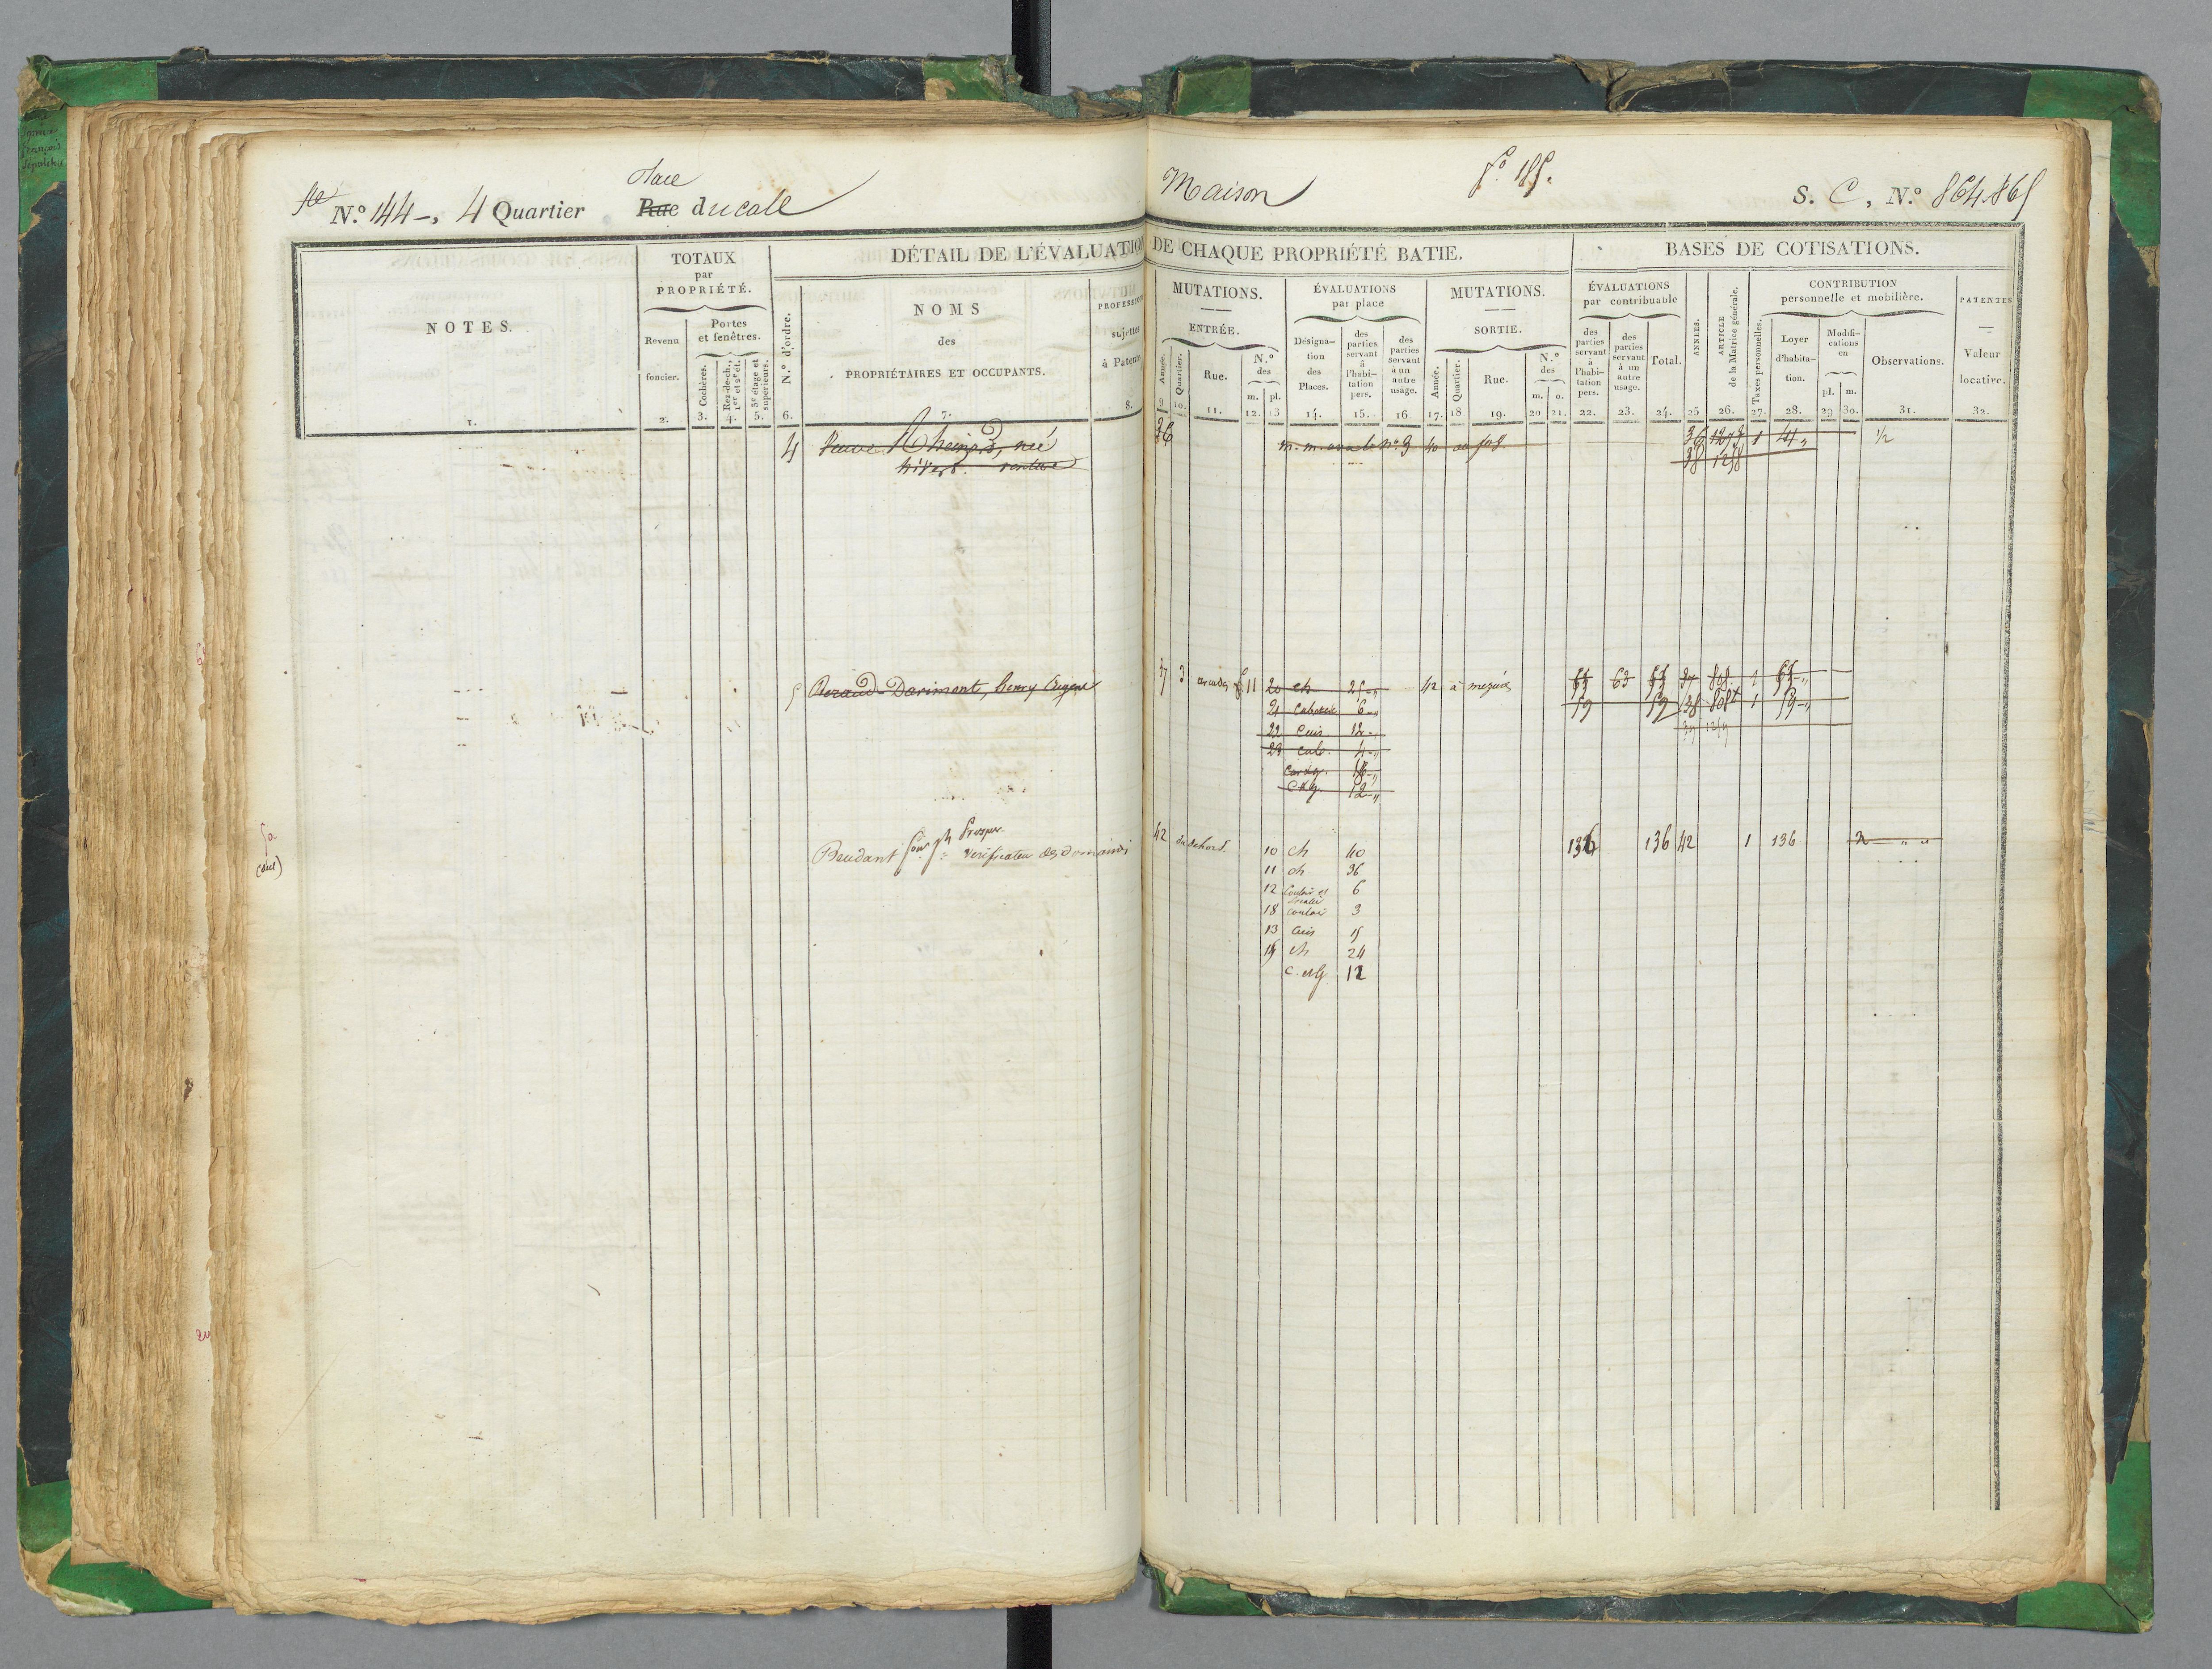 Place
N.º 144 -, 4 Quartier Rue ducale
Maison
fº 185.
S. C, N.º 864.865
NOTES.
1.
TOTAUX
par
PROPRIÉTÉ.
Revenu
foncier.
2.
Portes
et fenêtres.
Cochères.
3.
Rez-de-ch.,
1er et 2e ét.
4.
3e étage et
supérieurs.
5.
DÉTAIL DE L'ÉVALUATION DE CHAQUE PROPRIÉTÉ BATIE.
N.º d'ordre.
6.
NOMS
des
PROPRIÉTAIRES ET OCCUPANTS.
7.
PROFESSION
sujettes
à Patente
8.
MUTATIONS.
ENTRÉE.
Année.
9
Quartier.
10.
Rue.
11.
N.º
des
m. pl.
12. 13
ÉVALUATIONS
par place
Désigna-
tion
des
Places.
14.
des
parties
servant
à
l'habi-
tation
pers.
15.
des
parties
servant
à un
autre
usage.
16.
MUTATIONS.
SORTIE.
Année.
17.
Quartier.
18
Rue.
19.
N.º
des
m. o.
20 21.
BASES DE COTISATIONS.
ÉVALUATIONS
par contribuable
des
parties
servant
à
l'habi-
tation
pers.
22.
des
parties
servant
à un
autre
usage.
23.
Total.
24.
ANNÉES.
25
ARTICLE
de la Matrice générale.
26.
CONTRIBUTION
personnelle et mobilière.
Taxes personnelles.
27.
Loyer
d'habita-
tion.
28.
Modifi-
cations
en
pl. m.
29 30.
Observations.
31.
PATENTES
Valeur
locative.
32.
4 née 36 nº 9 40 36 1 1/2
38 1258
5 Darimont, henry Eugene 37 3 11 20 ch 25 42 à mezières 63 63 63 37 1 63
21 6 59 59 38 1 59
22 Cuis 12
23 cab. 4
12
Prosper
Beudant Joseph verificateur des domaines 42 du dehors. 10 ch 40 136 136 42 1 136
11 ch 36
12 Couloir et 6
18 couloir 3
13 Cuis 15
15 ch 24
c. et g. 12